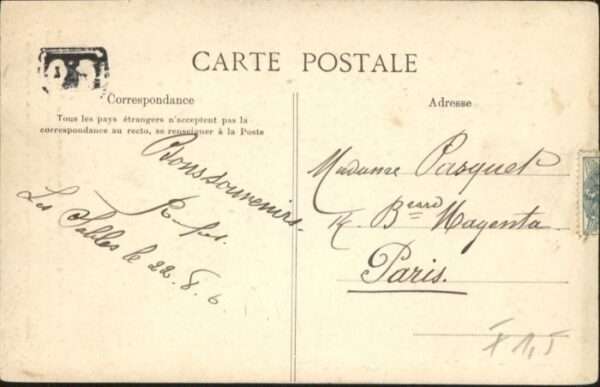 CARTE POSTALE
Correspondance
Tous les pays étrangers n'acceptent pas la
correspondance au recto, se renseigner à la Poste
Bons souvenirs.
Les Sables le 22.8.6
Adresse
Madame Pasquet
Bard Magenta
Paris.